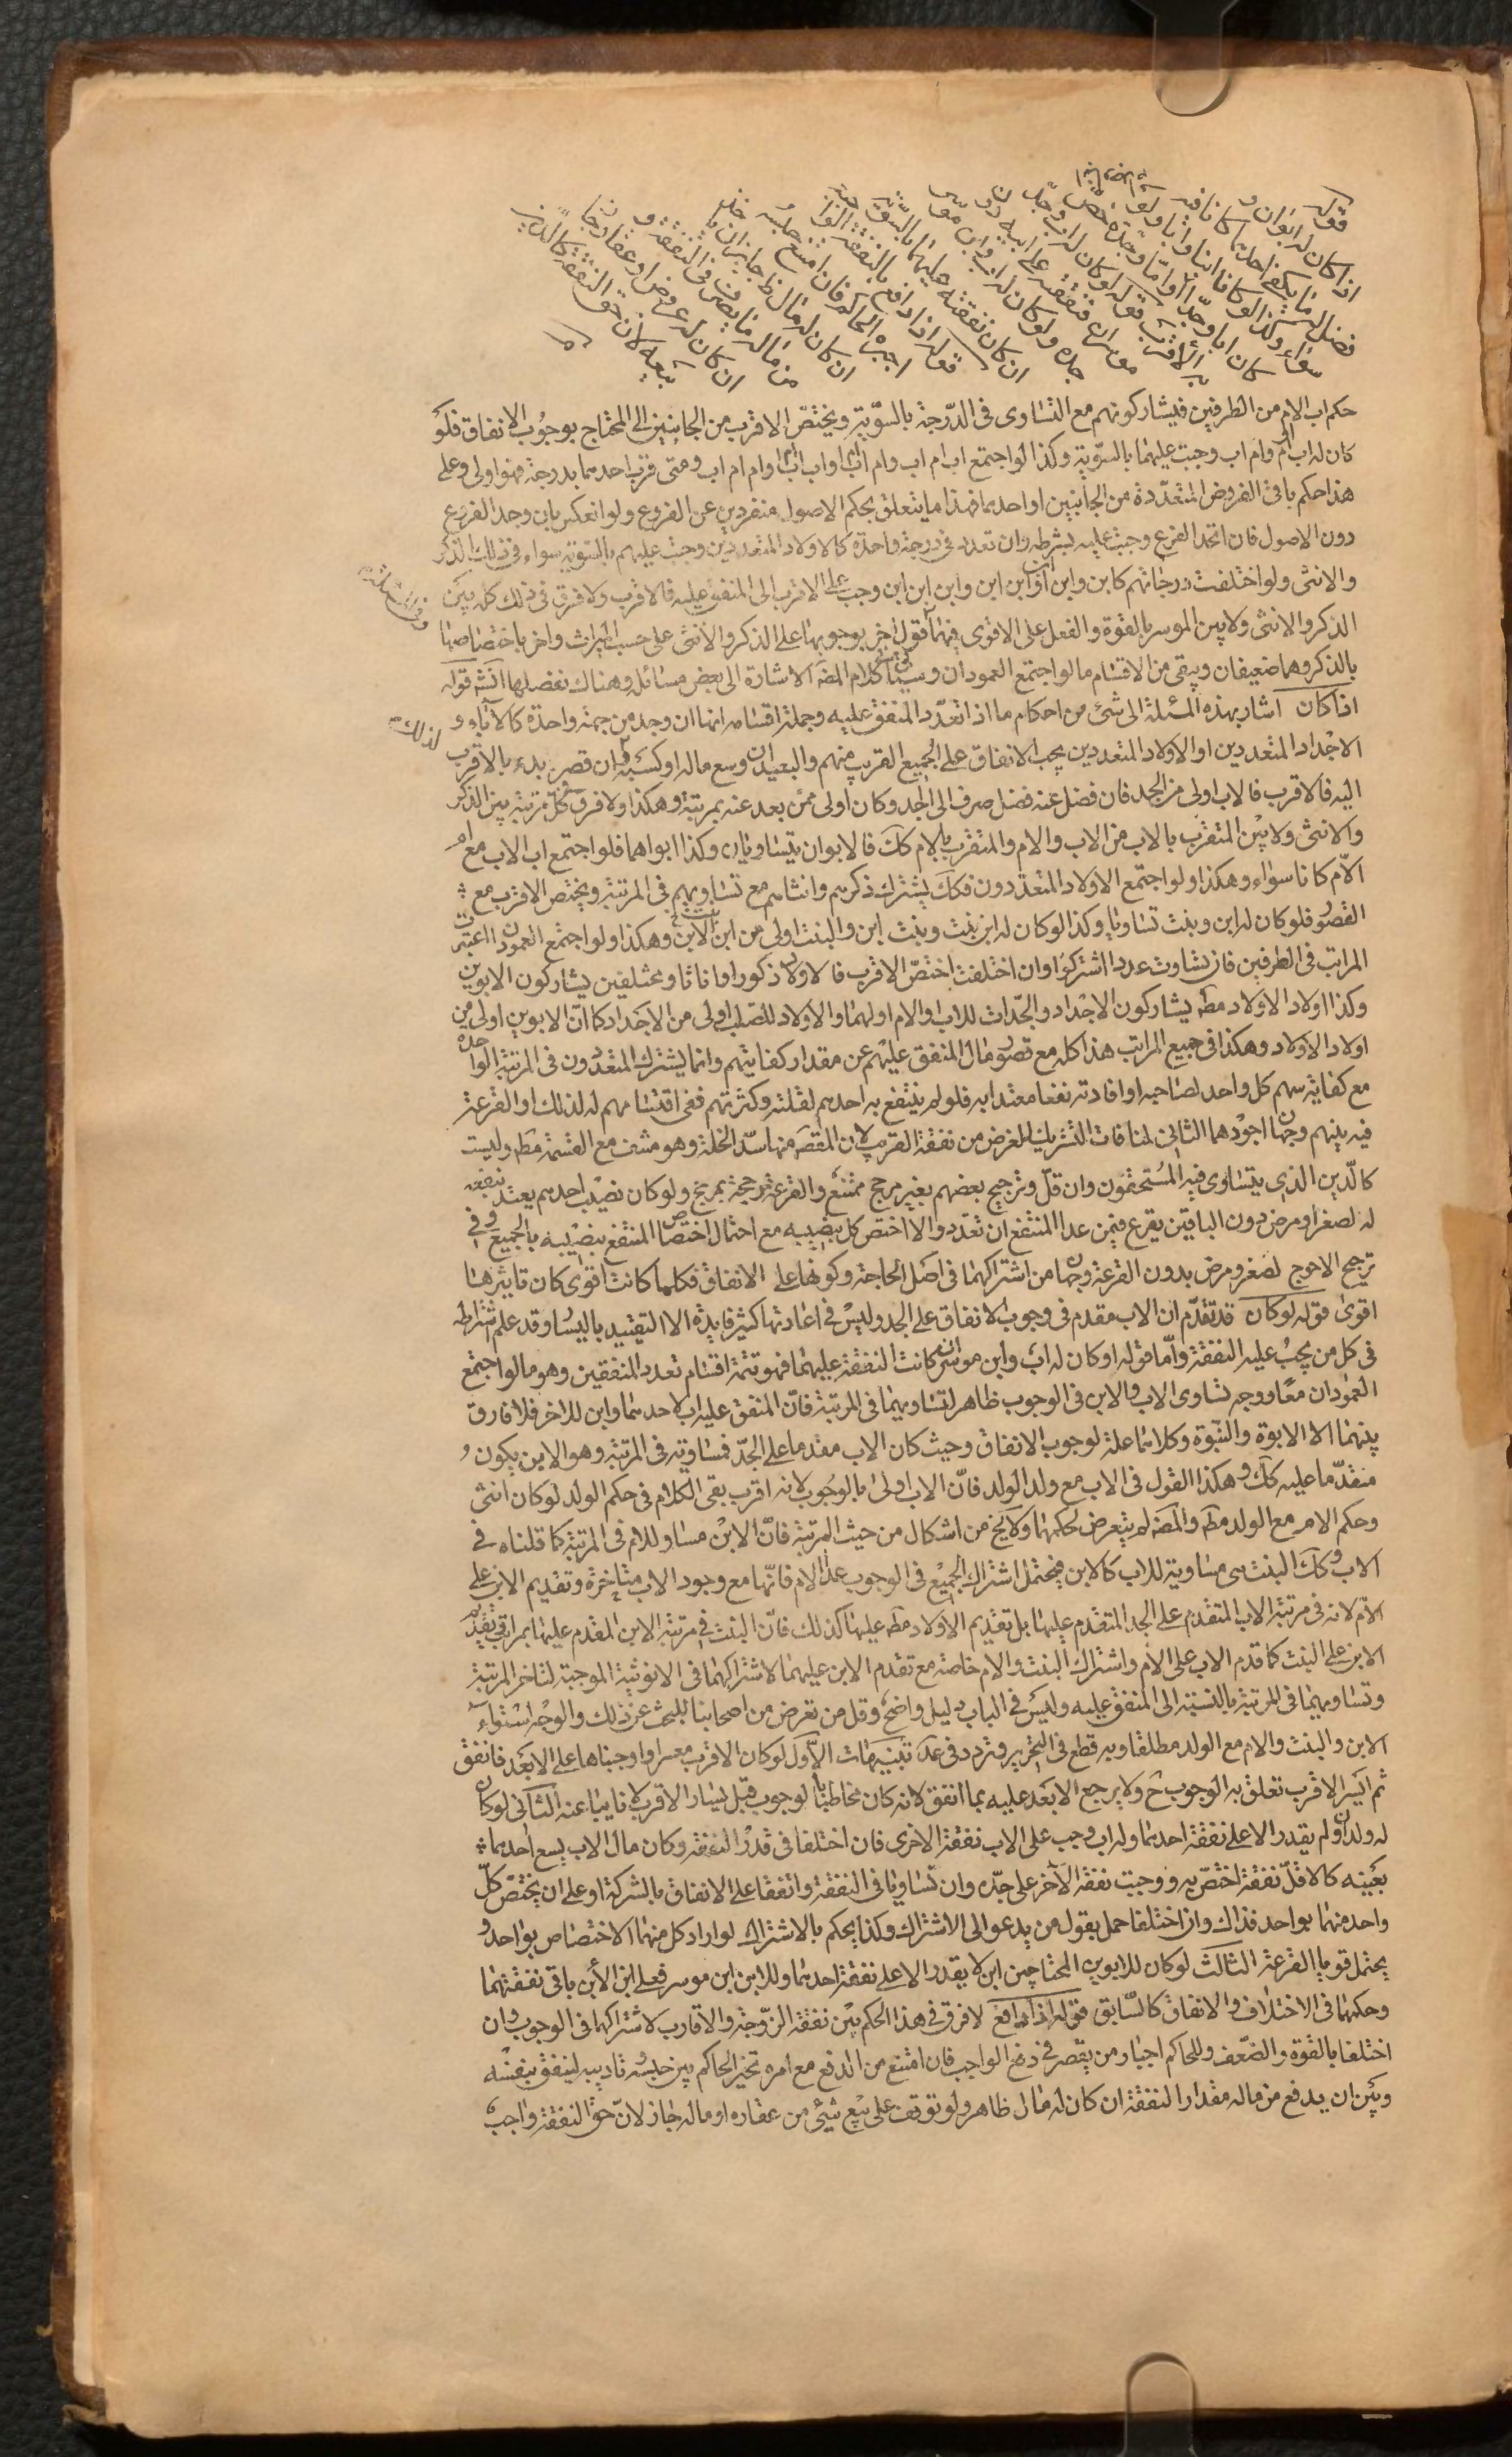 قوله اذا كان له ابوان و
فضل له ما يكفي احدهما كانا فيه
سواء وكذا لو كانا ابنا وابا ولو
كان ابا وجدا او اما وجدة خص
به الاقرب قوله لو كان له اب وجد
موسران فنفقته على ابيه دون
جده ولو كان له اب وابن موسران
كان نفقته عليهما بالسوية
قوله اذا دافع بالنفقة الواجبة
اجبره الحاكم فان امتنع حبسه
ان كان له مال ظاهر جاز ان ياخذ
من ماله ما يصرف في النفقة و
ان كان له عروض او عقار او متاع جاز
بيعه لان حق النفقة كالدين
حكم اب الام من الطرفين فيشاركونهم مع التساوى فى الدرجة بالسوية ويختص الاقرب من الجانبين الى المحتاج بوجوب الانفاق فلو
كان له اب ام وام اب وجبت عليهما بالسوية وكذا لو اجتمع اب ام اب وام اب اب او اب اب اب وام ام اب ومتى قرب احدهما بدرجة فهو اولى وعلى
هذا حكم باقى الفروض المتعددة من الجانبين او احدهما فهذا ما يتعلق بحكم الاصول منفردين عن الفروع ولو انعكس بان وجد الفروع
دون الاصول فان اتحد الفرع وجبت عليه بشرطه وان تعدد فى درجة واحدة كالاولاد المتعددين وجبت عليهم بالسوية سواء فى ذلك الذكر
والانثى ولو اختلفت درجاتهم كابن وابن ابن او ابن ابن وابن ابن ابن وجب على الاقرب الى المنفق عليه فالاقرب ولا فرق فى ذلك كله بين
الذكر والانثى ولا بين الموسر بالقوة والفعل على الاقوى فيهما قول اخر بوجوبها على الذكر والانثى على حسب الميراث واخر باختصاصها
بالذكر وهما ضعيفان ويبقى من الاقسام ما لو اجتمع العمودان وسياتى فى كلام المص الاشارة الى بعض مسائله وهناك نفصلها انش قوله
اذا كان اشار بهذه المسئلة الى شئ من احكام ما اذا تعدد المنفق عليه وجملة اقسامه انها ان وجد من جهة واحدة كالاباء و
الاجداد المتعددين او الاولاد المتعددين يجب الانفاق على الجميع القريب منهم والبعيد ان وسع ماله او كسبه وان قصر بدء بالاقرب
اليه فالاقرب فالاب اولى من الجد فان فضل عنه فضل صرف الى الجد وكان اولى ممن بعد عنه بمرتبة وهكذا ولا فرق فى كل مرتبة بين الذكر
والانثى ولا بين المتقرب بالاب من الاب والام والمتقرب بالام كك فالابوان يتساويان وكذا ابواهما فلو اجتمع اب الاب مع ام
الام كانا سواء وهكذا ولو اجتمع الاولاد المتعددون فكك يشترك ذكرهم وانثاهم مع تساويهم فى المرتبة ويختص الاقرب مع
القصور فلو كان له ابن وبنت تساويا وكذا لو كان له ابن بنت وبنت ابن والبنت اولى من ابن الابن وهكذا ولو اجتمع العمودان اعتبرت
المراتب فى الطرفين فان تساوت عددا اشتركوا وان اختلفت اختص الاقرب فالاولاد ذكورا واناثا ومختلفين يشاركون الابوين
وكذا اولاد الاولاد مطه يشاركون الاجداد والجدات للاب والام اولهما والاولاد للصلب اولى من الاجداد كما ان الابوين اولى من
اولاد الاولاد وهكذا فى جميع المراتب هذا كله مع قصور مال المنفق عليهم عن مقدار كفايتهم وانما يشترك المتعددون فى المرتبة الواحدة
مع كفاية سهم كل واحد لصاحبه او افادته نفعا معتدا به فلو لم ينتفع به احدهم لقلته وكثرتهم ففى اقتسامهم له لذلك او القرعة
فيه بينهم وجهان اجودهما الثانى لمنافات التشريك للغرض من نفقة القريب لان المقصد منها سد الخلة وهو منتف مع القسمة مطه وليست
كالدين الذى يتساوى فيه المستحقون وان قل وترجيح بعضهم بغير مرجح ممتنع والقرعة مرجحة بمرجح ولو كان نصيب احدهم يعتد بنفعه
له لصغر او مرض دون الباقين يقرع فيمن عدا المنتفع ان تعدد والا اختص كل بنصيبه مع احتمال اختصاص المنتفع بنصيبه بالجميع وفى
ترجيح الاحوج لصغر ومرض بدون القرعة وجهان من اشتراكهما فى اصل الحاجة وكونها علة الانفاق فكلما كانت اقوى كان تاثيرها
اقوى قوله لو كان قد تقدم ان الاب مقدم فى وجوب الانفاق على الجد وليس فى اعادتها كثير فايدة الا التقييد باليسار وقد علم اشتراطه
فى كل من يجب عليه النفقة واما قوله او كان له اب وابن موسران كانت النفقة عليهما فهو تتمة اقسام تعدد المنفقين وهو ما لو اجتمع
العمودان معا ووجه تساوى الاب والابن فى الوجوب ظاهر لتساويهما فى المرتبة فان المنفق عليه اب لاحدهما وابن للاخر فلا فارق
بينهما الا الابوة والنبوة وكلاهما علة لوجوب الانفاق وحيث كان الاب مقدما على الجد فمساويه فى المرتبة وهو الابن يكون
مقدما عليه كك وهكذا القول فى الاب مع ولد الولد فان الاب اولى بالوجوب لانه اقرب بقى الكلام فى حكم الولد لو كان انثى
وحكم الام مع الولد مطه والمص لم يتعرض لحكمهما ولا يخ من اشكال من حيث المرتبة فان الابن مساو للام فى المرتبة كما قلناه فى
الاب وكك البنت هى مساوية للاب كالابن فيحتمل اشتراك الجميع فى الوجوب عدا الام فانها مع وجود الاب متاخرة وتقديم الابن على
الام لانه فى مرتبة الاب المتقدم على الجد المتقدم عليها بل تقديم الاولاد مطه عليها كذلك فان البنت فى مرتبة الابن المقدم عليها بمراتب وتقديم
الابن على البنت كما قدم الاب على الام واشتراك البنت والام خاصة مع تقدم الابن عليهما لاشتراكهما فى الانوثية الموجبة لتاخر المرتبة
وتساويهما فى المرتبة بالنسبة الى المنفق عليه وليس فى الباب دليل واضح وقل من تعرض من اصحابنا للبحث عن ذلك والوجه استواء
الابن والبنت والام مع الولد مطلقا وبه قطع فى التحرير وتردد فى عد تنبيهات الاول لو كان الاقرب معسرا واوجبناها على الابعد فانفق
ثم ايسر الاقرب تعلق به الوجوب ح ولا يرجع الابعد عليه بما انفق لانه كان مخاطبا بالوجوب قبل يسار الاقرب لا نايبا عنه الثانى لو كان
له ولدان ولم يقدر الا على نفقة احدهما وله اب وجب على الاب نفقة الاخرى فان اختلفا فى قدر النفقة وكان مال الاب يسع احدهما
بعينه كالاقل نفقة اختص به ووجبت نفقة الاخر على جده وان تساويا فى النفقة واتفقا على الانفاق بالشركة او على ان يختص كل
واحد منهما بواحد فذاك وان اختلفا حمل بقول من يدعو الى الاشتراك وكذا يحكم بالاشتراك لو اراد كل منهما الاختصاص بواحد و
يحتمل قويا القرعة الثالث لو كان للابوين المحتاجين ابن لا يقدر الا على نفقة احدهما وللابن ابن موسر فعلى ابن الابن باقى نفقتهما
وحكمهما فى الاختلاف والاتفاق كالسابق قوله اذا دافع لا فرق فى هذا الحكم بين نفقة الزوجة والاقارب لاشتراكهما فى الوجوب وان
اختلفا بالقوة والضعف وللحاكم اجبار من يقصر فى دفع الواجب فان امتنع من الدفع مع امره تخير الحاكم بين حبسه وتاديبه لينفق بنفسه
وبين ان يدفع من ماله مقدار النفقة ان كان له مال ظاهر ولو توقف على بيع شئ من عقاره او ماله جاز لان حق النفقة واجب